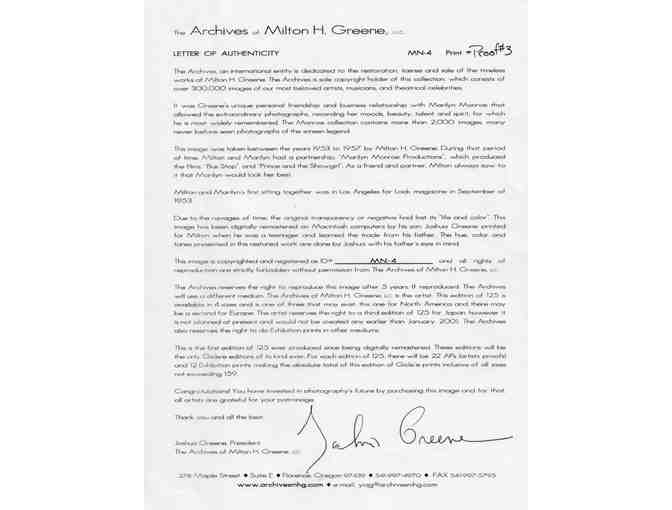 The Archives of Milton H. Greene, LLC.
LETTER OF AUTHENTICITY MN-4 Print # Proof #3
The Archives, an international entity is dedicated to the restoration, license and sale of the timeless
works of Milton H. Greene. The Archives is sole copyright holder of this collection, which consists of
over 300,000 images of our most beloved artists, musicians, and theatrical celebrities.
It was Greene's unique personal friendship and business relationship with Marilyn Monroe that
allowed the extraordinary photographs, recording her moods, beauty, talent and spirit, for which
he is most widely remembered. The Monroe collection contains more than 2,000 images, many
never before seen photographs of the screen legend.
This image was taken between the years 1953 to 1957 by Milton H. Greene. During that period
of time, Milton and Marilyn had a partnership, "Marilyn Monroe Productions", which produced
the films, "Bus Stop", and "Prince and the Showgirl". As a friend and partner, Milton always saw to
it that Marilyn would look her best.
Milton and Marilyn's first sitting together was in Los Angeles for Look magazine in September of
1953.
Due to the ravages of time, the original transparency or negative had lost its "life and color". This
image has been digitally remastered on Macintosh computers by his son, Joshua Greene printed
for Milton when he was a teenager and learned the trade from his father. The hue, color and
tones presented in this restored work are done by Joshua with his father's eyes in mind.
This image is copyrighted and registered as ID# MN-4 and all rights of
reproduction are strictly forbidden without permission from The Archives of Milton H. Greene, LLC.
The Archives reserves the right to reproduce this image after 5 years. If reproduced, The Archives
will use a different medium. The Archives of Milton H. Greene, LLC is the artist. This edition of 125 is
available in 4 sizes and is one of three that may exist, this one for North America and there may
be a second for Europe. The artist reserves the right to a third edition of 125 for Japan, however it
is not planned at present and would not be created any earlier than January, 2001. The Archives
also reserves the right to do Exhibition prints in other mediums.
This is the first edition of 125 ever produced since being digitally remastered. These editions will be
the only Giclée editions of its kind ever. For each edition of 125, there will be 22 AP's (artists proofs)
and 12 Exhibition prints making the absolute total of this edition of Giclée prints inclusive of all sizes
not exceeding 159.
Congratulations! You have invested in photography's future by purchasing this image and for that
all artists are grateful for your patronage.
Thank you and all the best.
Joshua Greene, President
The Archives of Milton H. Greene, LLC
Maple Street ◆ Suite E ◆ Florence, Oregon 97439 ◆ 541-997-4970 ◆ FAX 541-997-5795
www.archivesmhg.com ◆ e-mail: